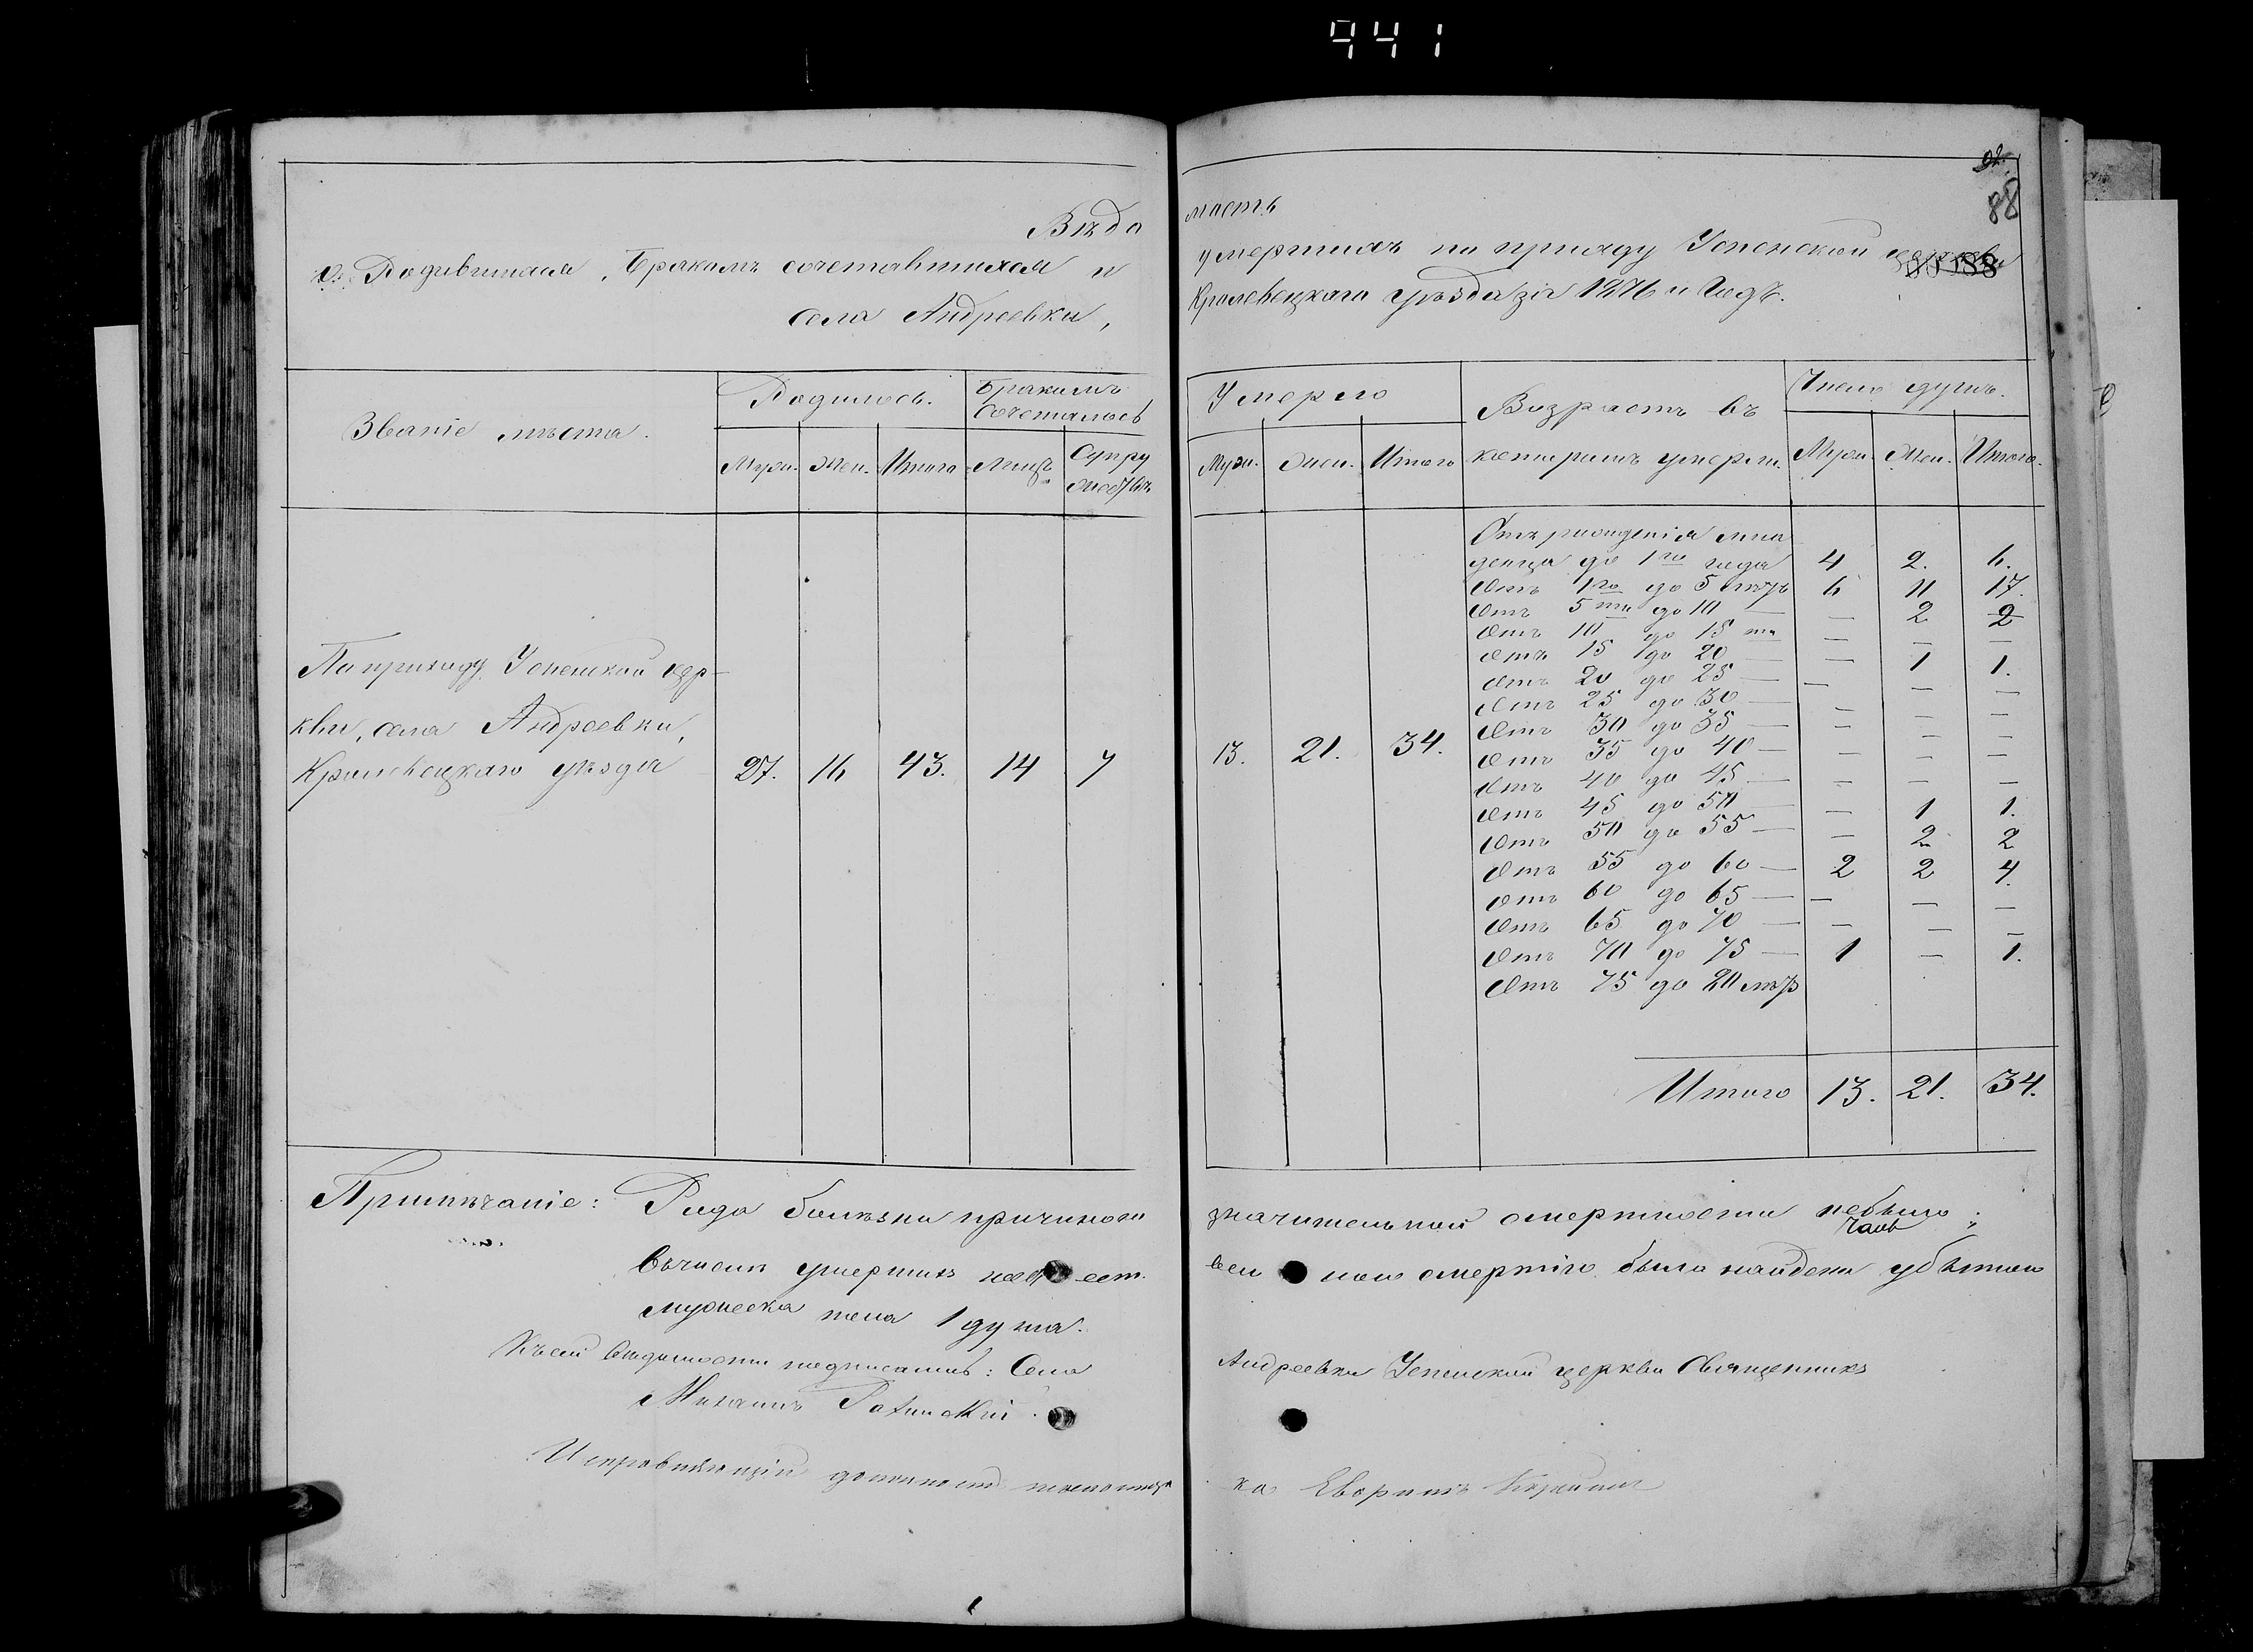 441
92.
88
Вѣдо
мость
о Родившихся, Бракомъ сочетавшихся и
умершихъ по приходу Успенской церкви
села Андреевки,
Кролевецкаго уѣзда за 1876й Годъ.
Званіе мѣста.
Родилось.
Бракомъ
Сочеталось
Муж. Жен. Итого Лицъ Супру
жествъ
По приходу Успенской цер-
кви, села Андреевки,
Кролевецкаго уѣзда 27. 16 43. 14 7
Умерло
Возрастъ въ
которомъ умерли.
Число душъ.
Муж. Жен. Итого
Муж. Жен. Итого.
13. 21. 34.
Отъ рожденія мла
денца до 1го года 4 2. 6.
Отъ 1го до 5 лѣтъ 6 11 17.
Отъ 5ти до 10 — — 2 2
Отъ 10 до 15ти — — —
Отъ 15 до 20 — — 1 1.
Отъ 20 до 25 — — — —
Отъ 25 до 30 — — — —
Отъ 30 до 35 — — — —
Отъ 35 до 40 — — — —
Отъ 40 до 45 — — — —
Отъ 45 до 50 — — 1 1.
Отъ 50 до 55 — — 2 2
Отъ 55 до 60 — 2 2 4.
Отъ 60 до 65 — — — —
Отъ 65 до 70 — — — —
Отъ 70 до 75 — 1 — 1.
Отъ 75 до 80 лѣтъ
Итого 13. 21. 34.
Примѣчаніе: Рода болѣзни причиною
значительной смертности небыло;
въчислѣ умершихъ
смертію было найдено убытою
мужеска пола 1 душа.
Къ сей вѣдомости подписались: Села
Андреевки Успенской церкви Священникъ
Михаилъ
Исправляющій должность псаломщи
ка